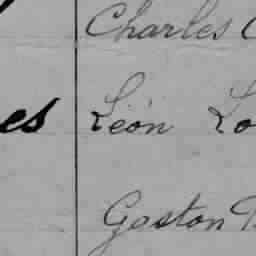 Charles
es Léon Lo
Gaston